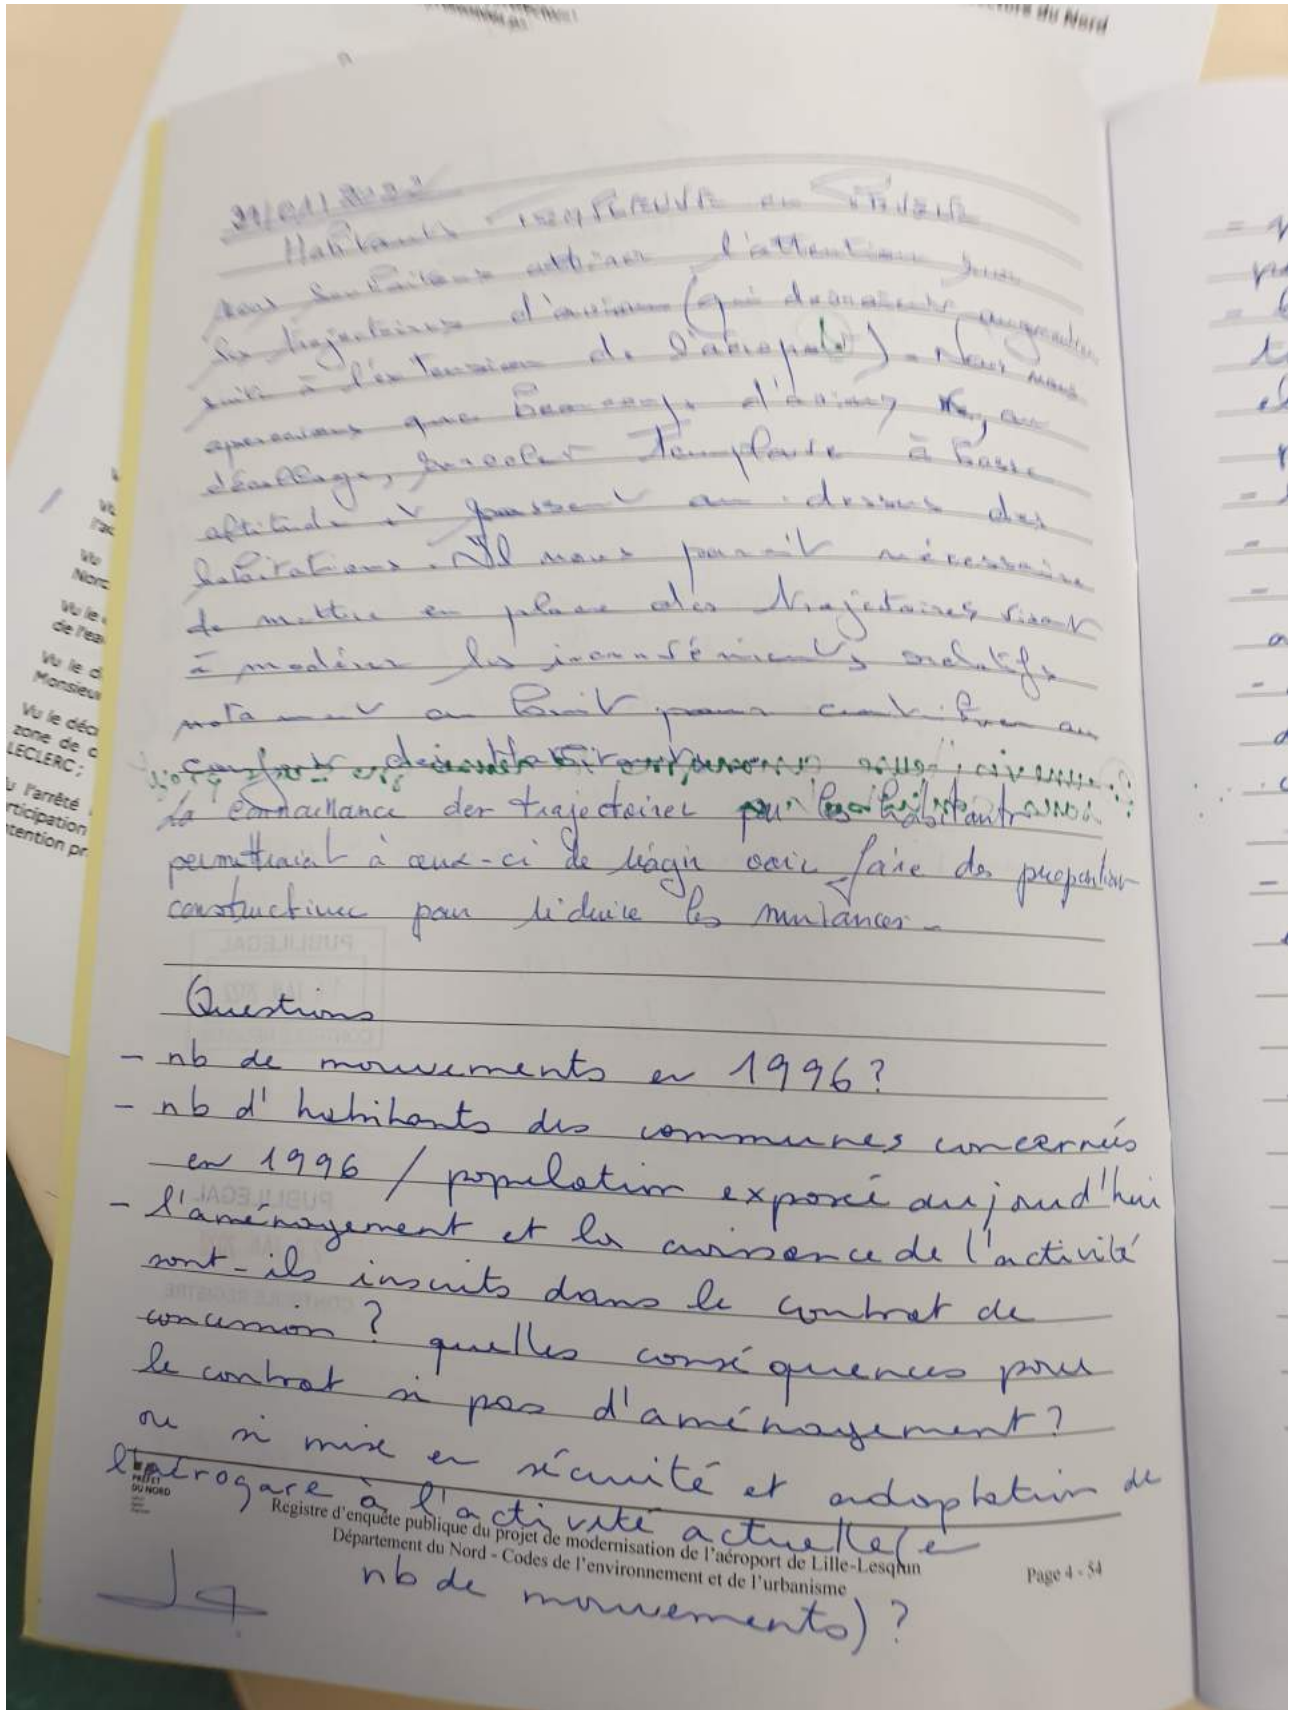 cture du Nord
Habitants TEMPLEUVE en PEVELE
nous souhaitons attirer l'attention sur
les trajectoires d'avions (qui devraient augmenter
suite à l'extension de l'aéroport). Nous nous
apercevons que beaucoup d'avions, au
décollage, survolent Templeuve à basse
altitude et passent au-dessus des
habitations. Il nous parait nécessaire
de mettre en place des trajectoires visant
à modérer les inconvénients relatifs
notamment au bruit pour contribuer au
La connaissance des trajectoires par les habitants
permettraient à ceux-ci de réagir voir faire des proposition
constructives pour réduire les nuisances.
Questions
- nb de mouvements en 1996?
- nb d'habitants des communes concernés
en 1996 / population exposé aujourd'hui
- l'aménagement et la croissance de l'activité
sont-ils inscrits dans le contrat de
concession ? quelles conséquences pour
le contrat si pas d'aménagement?
ou si mise en sécurité et adaptation de
l'aérogare à l'activité actuelle (
nb de mouvements) ?
PRÉFET
DU NORD
Registre d'enquête publique du projet de modernisation de l'aéroport de Lille-Lesquin
Département du Nord - Codes de l'environnement et de l'urbanisme
Page 4 - 54
Vu le d
Monsieu
Vu le déc
zone de
LECLERC ;
l'arrêté